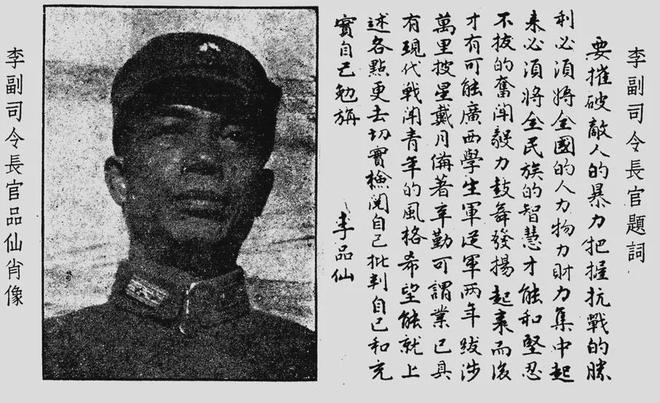 李副司令長官題詞
要摧破敵人的暴力把握抗戰的勝
利必須將全國的人力物力財力集中起
來必須將全民族的智慧才能和堅忍
不拔的奮鬥毅力鼓舞發揚起來而後
才有可能廣西學生軍從軍兩年跋涉
萬里披星戴月備著辛勤可謂業已具
有現代戰鬥青年的風格希望能就上
述各點更去切實檢閱自己批判自己和充
實自己勉旃
李品仙
李副司令長官品仙肖像